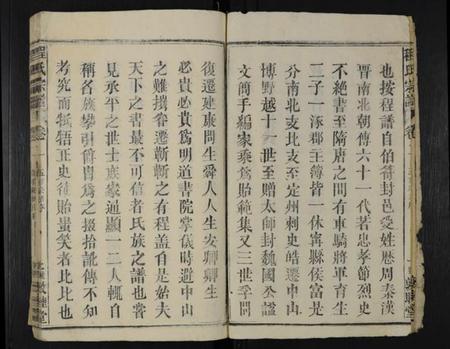 也按程譜自伯符封邑受姓歷周秦漢
晉南北朝傳六十一代若忠孝節烈史
不絕書至隋唐之間有車騎將軍育生
二子一涿郡主簿皆一休寧縣侯富是
分南北支比支至定州刺史皓遷中山
博野越十一世至贈太師封魏國公諡
文簡手編家乘爲貽範集又三世孚問
復遷建康問生舜人人生安卿卿生
必貴必貴爲明道書院掌儀時避中山
之難携眷還新有程蓋自是始夫
天下之書最不可信者氏族之譜也嘗
見承平之世士族家通顯一二人輒自
稱各族攀引爵冑爲之掇拾訛傳不知
考究而牴牾正史徒貽蚩笑者比比也
程氏宗譜
卷
敦睦堂